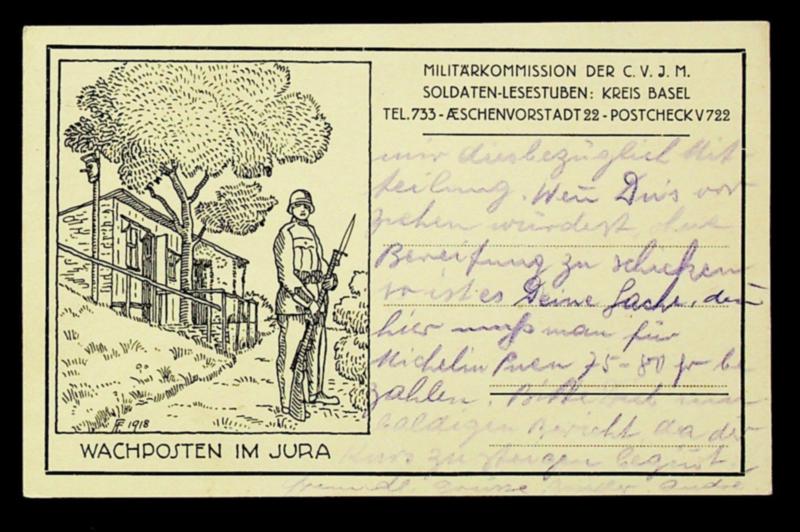 MILITÄRKOMMISSION DER C. V. J. M.
SOLDATEN-LESESTUBEN: KREIS BASEL
TEL. 733 - ÆSCHENVORSTADT 22 - POSTCHECK V 722
mir diesbezüglich Mit-
teilung. Wen̄ Du's vor
ziehen würdest, ohne
Bereifung zu schicken
so ist es Deine Sache, den̄
hier muss man für
Michelin Pneu 75-80 fr be
zahlen. Bitte um
baldigen Bericht da der
Kurs zu steigen beginnt.
freundl. Grüsse André
F 1918
WACHPOSTEN IM JURA